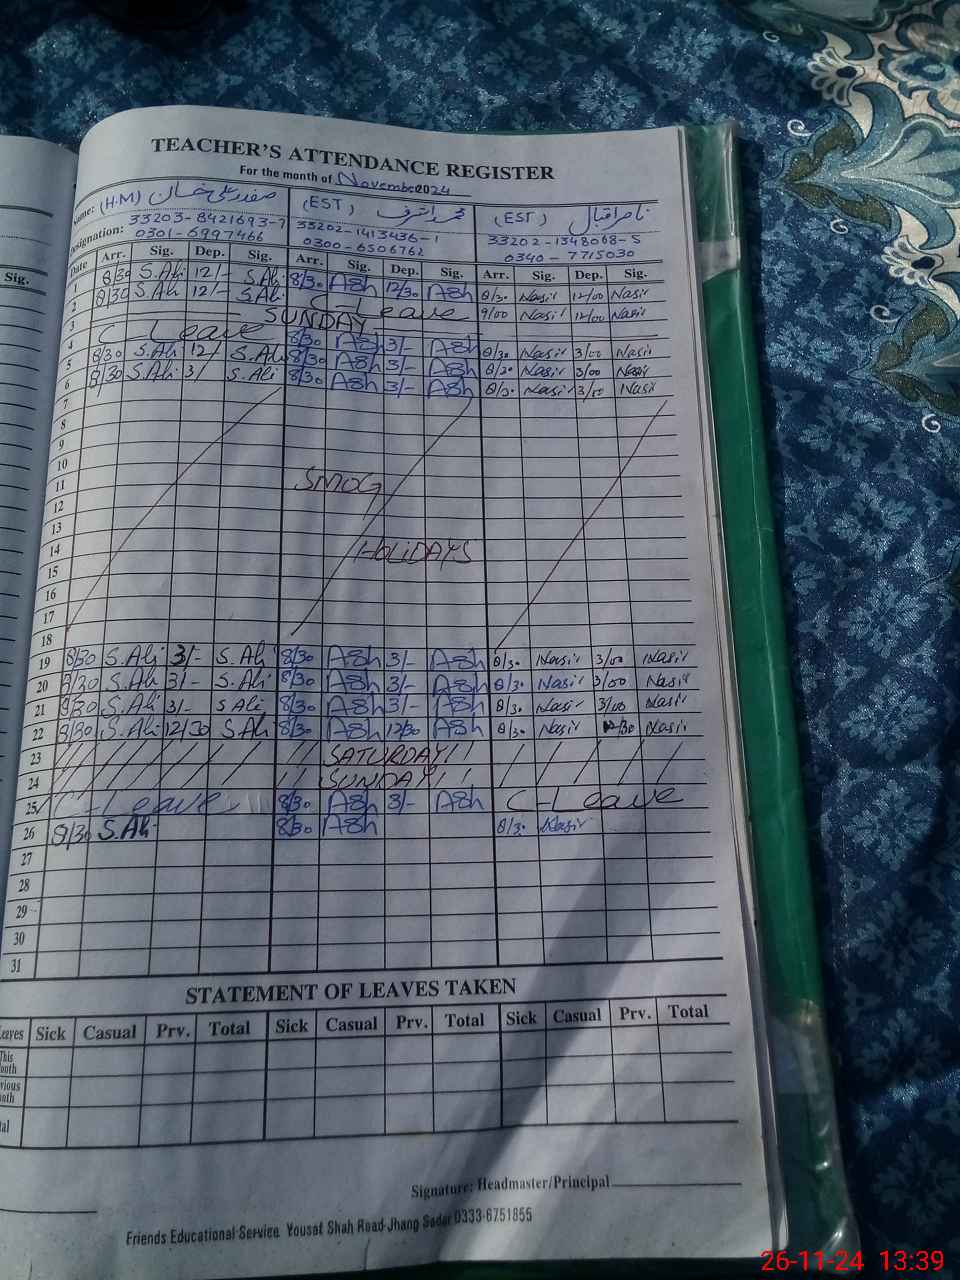 TEACHER'S ATTENDANCE REGISTER
For the month of November 2024
Name: (H.M) صفدر علی خان (EST) محمد اشرف (EST) ناصر اقبال
33203-8421693-7 33202-1413436-1 33202-1348068-5
Designation: 0301-6997466 0300-6506762 0340-7715030
Date Arr. Sig. Dep. Sig. Arr. Sig. Dep. Sig. Arr. Sig. Dep. Sig.
Sig.
1 8/30 S.Ali 12/- S.Ali 8/30 ASh 12/30 ASh 8/30 Nasir 12/00 Nasir
2 8/30 S.Ali 12/- S.Ali C-Leave 9/00 Nasir 12/00 Nasir
3 SUNDAY
4 C-Leave 8/30 ASh 3/- ASh 8/30 Nasir 3/00 Nasir
5 8/30 S.Ali 12/ S.Ali 8/30 ASh 3/- ASh 8/30 Nasir 3/00 Nasir
6 8/30 S.Ali 3/ S.Ali 8/30 ASh 3/- ASh 8/30 Nasir 3/00 Nasir
7
8
9
10
11 SMOG
12
13
14 HOLIDAYS
15
16
17
18
19 8/30 S.Ali 3/- S.Ali 8/30 ASh 3/- ASh 8/30 Nasir 3/00 Nasir
20 8/30 S.Ali 3/- S.Ali 8/30 ASh 3/- ASh 8/30 Nasir 3/00 Nasir
21 8/30 S.Ali 3/- S.Ali 8/30 ASh 3/- ASh 8/30 Nasir 3/00 Nasir
22 8/30 S.Ali 12/30 S.Ali 8/30 ASh 12/30 ASh 8/30 Nasir 12/30 Nasir
23 SATURDAY
24 SUNDAY
25 C-Leave 8/30 ASh 3/- ASh C-Leave
26 8/30 S.Ali 8/30 ASh 8/30 Nasir
27
28
29
30
31
STATEMENT OF LEAVES TAKEN
Leaves Sick Casual Prv. Total Sick Casual Prv. Total Sick Casual Prv. Total
This Month
Previous Month
Total
Signature: Headmaster/Principal
Friends Educational Service Yousaf Shah Road Jhang Sadar 0333-6751855
26-11-24 13:39